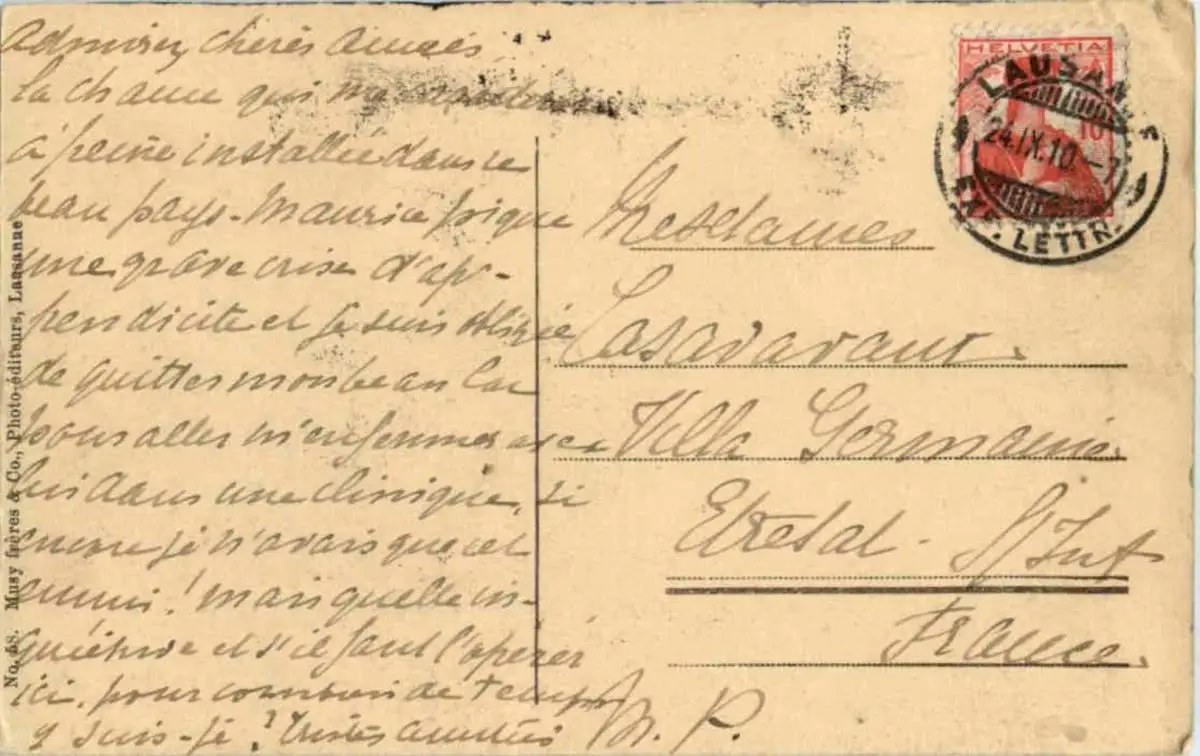 Admirez, chères amies,
la chance qui
à peine installée dans ce
beau pays - Maurice pique
une grave crise d'ap-
pendicite et je suis obligée
de quitter mon beau lac
pour aller m'enfermer avec
lui dans une clinique, si
encore je n'avais que cet
ennui! mais quelle in-
quiétude et s'il faut l'opérer
ici, pour combien de temps
y suis-je? Tristes amitiés
M. P.
Mesdames
Casadavant.
Villa Germaine.
Etretat - S/Inf
France.
HELVETIA
10
LAUSANNE
24.IX.10.-7
EXP. LETTR.
No. 58. Musy frères & Co., Photo-éditeurs, Lausanne